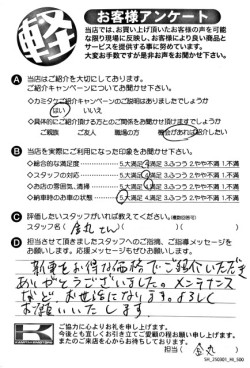 軽
お客様アンケート
当店では、お買い上げ頂いたお客様の声を可能
な限り現場に反映し、お客様により良い商品と
サービスを提供する事に努めています。
大変お手数ですが是非お声をお聞かせ下さい。
A 当店はご紹介を大切にしております。
ご紹介キャンペーンについてお聞かせ下さい。
◇カミタケご紹介キャンペーンのご説明はありましたでしょうか
はい いいえ
◇具体的にご紹介頂ける方とのご関係をお聞かせ頂けますでしょうか
ご親族 ご友人 職場の方 機会があれば紹介したい
B 当店をご利用になった印象をお聞かせ下さい。
◇総合的な満足度 5.大満足 4.満足 3.ふつう 2.やや不満 1.不満
◇スタッフの対応 5.大満足 4.満足 3.ふつう 2.やや不満 1.不満
◇お店の雰囲気、清掃 5.大満足 4.満足 3.ふつう 2.やや不満 1.不満
◇納車時のお車の状態 5.大満足 4.満足 3.ふつう 2.やや不満 1.不満
C 評価したいスタッフがいれば教えてください。(複数回答可)
スタッフ名( 金丸さん )( )
D 担当させて頂きましたスタッフへのご指摘、ご指導メッセージを
お願いします。応援メッセージもぜひお願いします。
新車をお得な価格でご紹介いただき
ありがとうございました。メンテナンス
など、お世話になります。よろしく
お願いいたします。
ご協力に心よりお礼を申し上げます。
今後とも宜しくお引き立てご愛顧の程お願い申し上げます。
またのご来店を心からお待ちしております。
担当( 金丸 )
SH_250301_AI_500